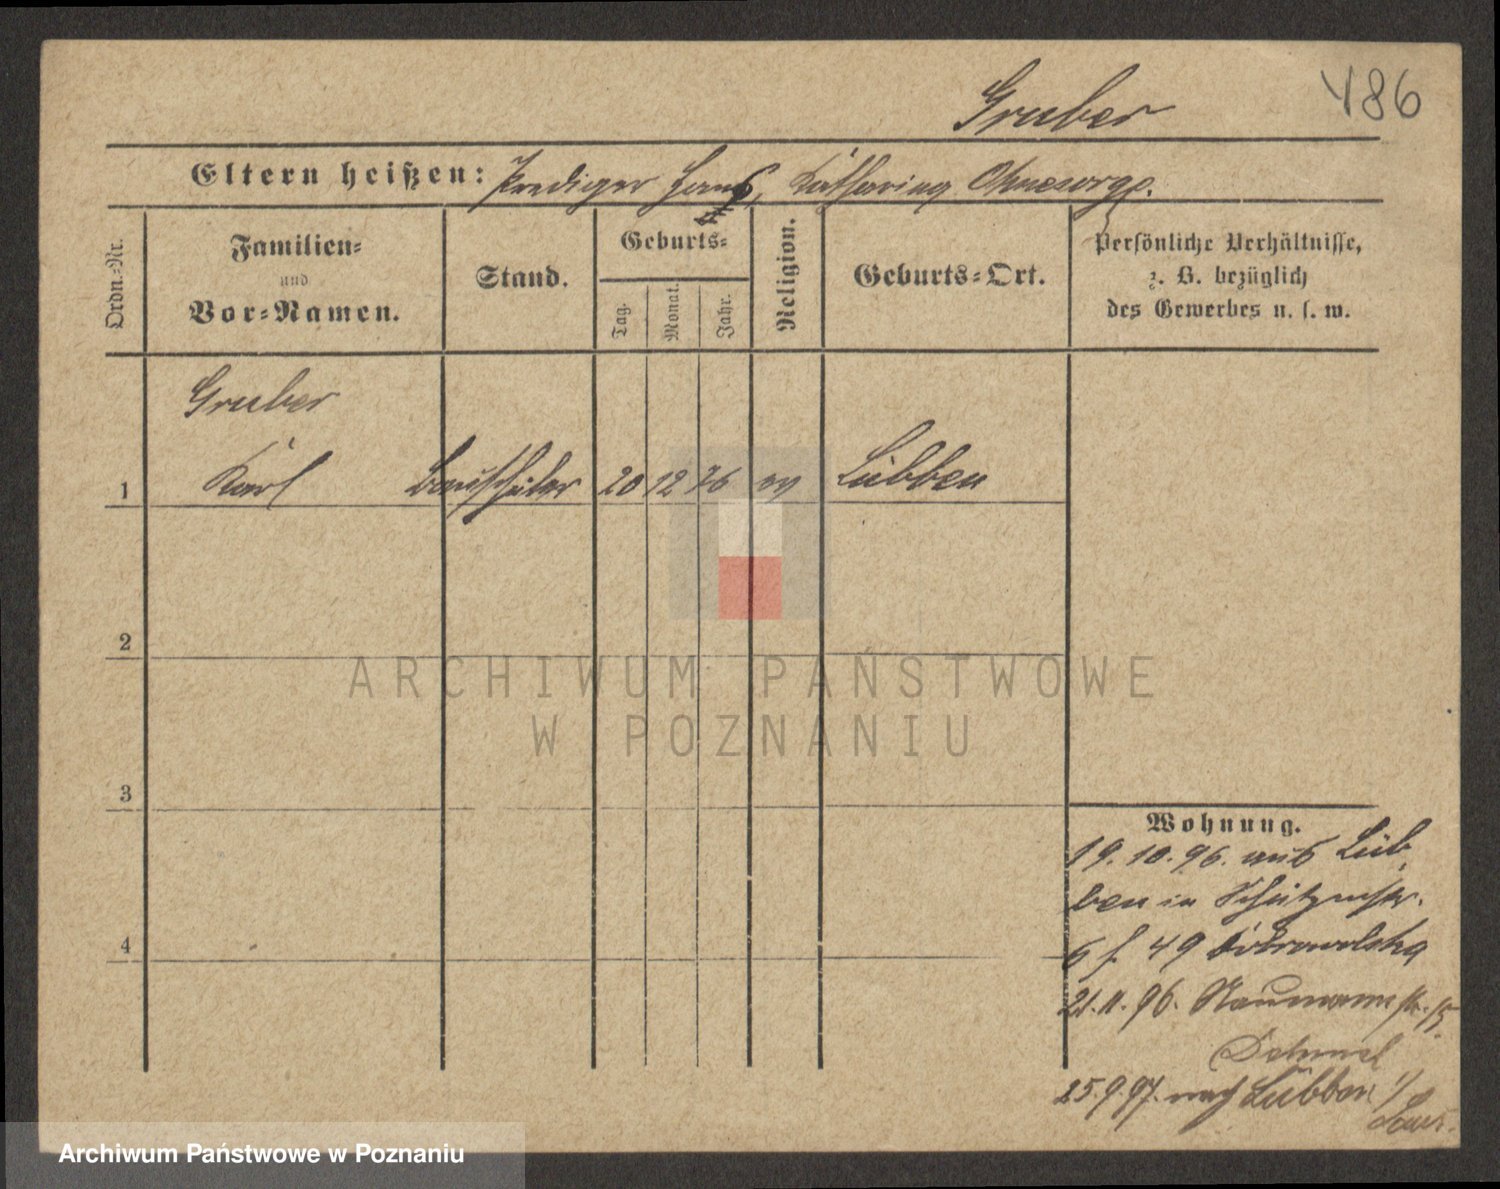 Gruber
486
Eltern heißen: Prediger Hans, Katharina Ohnesorge.
Ordn.-Nr.
Familien-
und
Vor-Namen.
Stand.
Geburts-
Tag.
Monat.
Jahr.
Religion.
Geburts-Ort.
Persönliche Verhältnisse,
z. B. bezüglich
des Gewerbes u. s. w.
Gruber
1 Karl Bauschüler 20 12 76 ev Lübben
2
3
4
Wohnung.
19.10.96. aus Lüb
ben in Schützenstr.
6 f. 49
21.11.96. Naumannstr. 15.
25.9.97. nach Lübben
ARCHIWUM PAŃSTWOWE
W POZNANIU
Archiwum Państwowe w Poznaniu